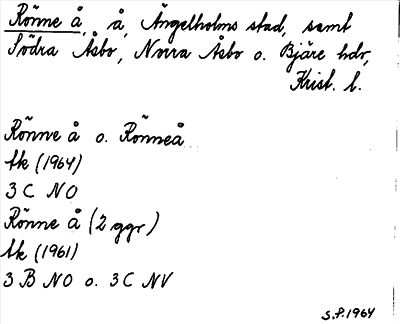 Rönne å, å, Ängelholms stad, samt
Södra Åsbo, Norra Åsbo o. Bjäre hdr,
Krist. l.
Rönne å o. Rönneå
tk (1964)
3 C NO
Rönne å (2 ggr)
tk (1961)
3 B NO o. 3C NV
S.P. 1964